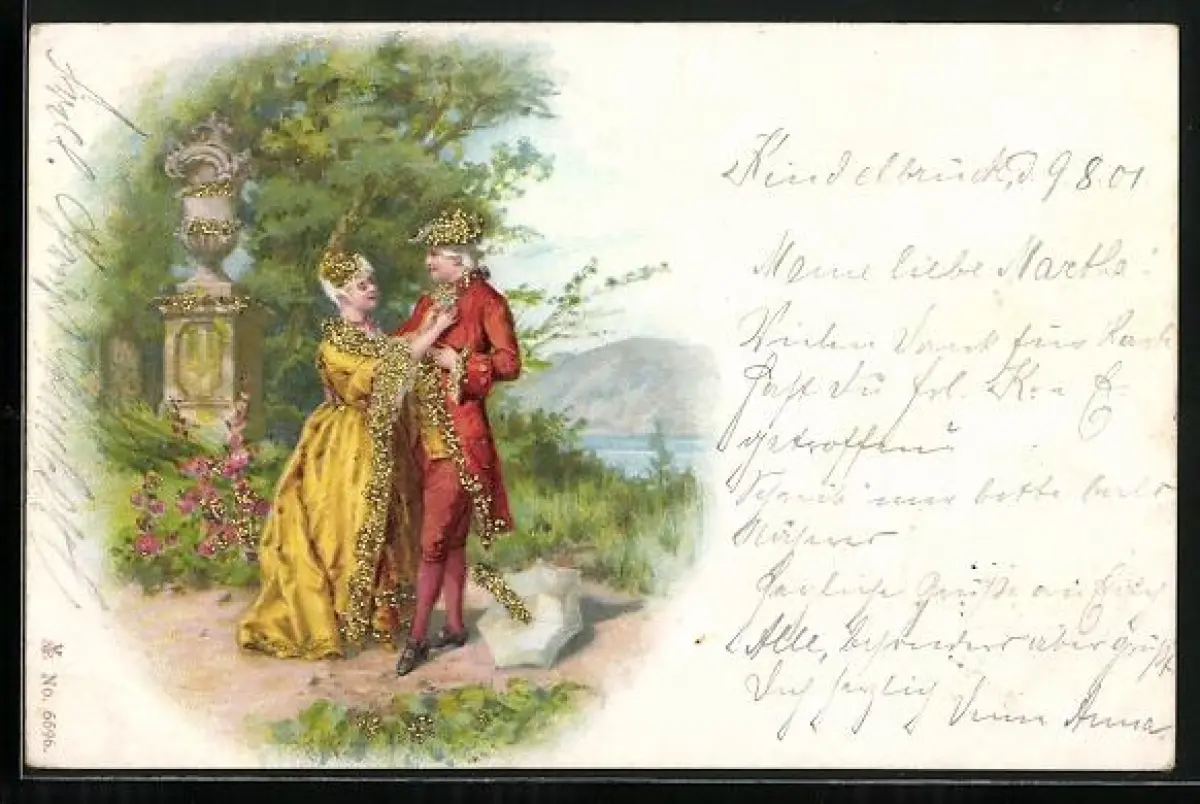 Kindelbrück, d. 9.8.01.
Meine liebe Martha!
Vielen Dank für Karte
Hast Du frl. K. u. E.
getroffen?
Schreib' nur bitte bald
Näheres
Herzliche Grüße an Euch
Alle, besonders aber grüßt
Dich herzlich Deine Anna.
No. 6696.